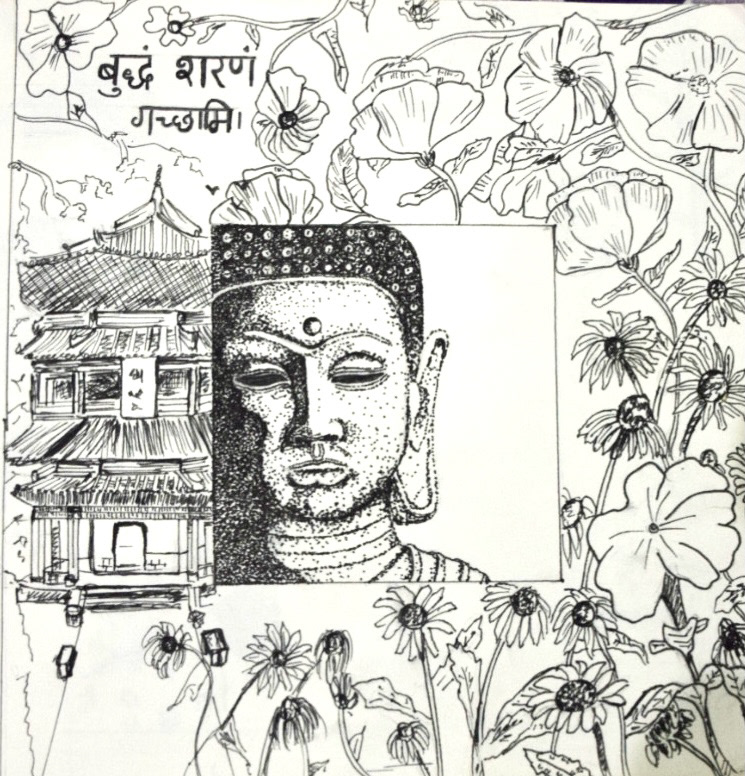 बुद्धं शरणं
गच्छामि।